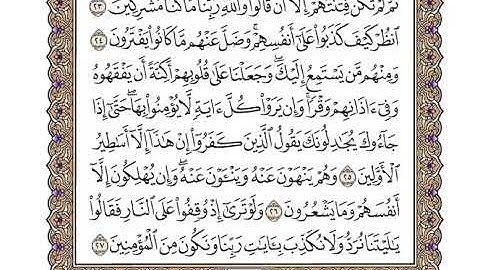 ثُمَّ لَمْ تَكُن فِتْنَتُهُمْ إِلَّا أَن قَالُوا۟ وَٱللَّهِ رَبِّنَا مَا كُنَّا مُشْرِكِينَ ٢٣
ٱنظُرْ كَيْفَ كَذَبُوا۟ عَلَىٰٓ أَنفُسِهِمْ ۚ وَضَلَّ عَنْهُم مَّا كَانُوا۟ يَفْتَرُونَ ٢٤
وَمِنْهُم مَّن يَسْتَمِعُ إِلَيْكَ ۖ وَجَعَلْنَا عَلَىٰ قُلُوبِهِمْ أَكِنَّةً أَن يَفْقَهُوهُ
وَفِىٓ ءَاذَانِهِمْ وَقْرًا ۚ وَإِن يَرَوْا۟ كُلَّ ءَايَةٍ لَّا يُؤْمِنُوا۟ بِهَا ۚ حَتَّىٰٓ إِذَا
جَآءُوكَ يُجَـٰدِلُونَكَ يَقُولُ ٱلَّذِينَ كَفَرُوٓا۟ إِنْ هَـٰذَآ إِلَّآ أَسَـٰطِيرُ
ٱلْأَوَّلِينَ ٢٥ وَهُمْ يَنْهَوْنَ عَنْهُ وَيَنْـَٔوْنَ عَنْهُ ۖ وَإِن يُهْلِكُونَ إِلَّآ
أَنفُسَهُمْ وَمَا يَشْعُرُونَ ٢٦ وَلَوْ تَرَىٰٓ إِذْ وُقِفُوا۟ عَلَى ٱلنَّارِ فَقَالُوا۟
يَـٰلَيْتَنَا نُرَدُّ وَلَا نُكَذِّبَ بِـَٔايَـٰتِ رَبِّنَا وَنَكُونَ مِنَ ٱلْمُؤْمِنِينَ ٢٧